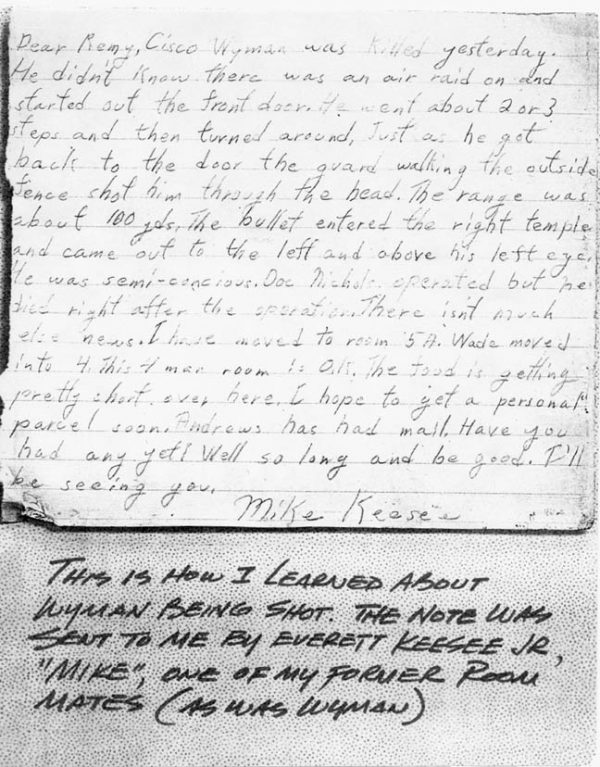 Dear Remy, Cisco Wyman was killed yesterday.
He didn't know there was an air raid on and
started out the front door. He went about 2 or 3
steps and then turned around, Just as he got
back to the door the guard walking the outside
fence shot him through the head. The range was
about 100 yds. The bullet entered the right temple
and came out to the left and above his left eye.
He was semi-concious. Doc Nichols operated but he
died right after the operation. There isn't much
else news. I have moved to room 5A. Wade moved
into 4. This 4 man room is O.K. The food is getting
pretty short over here. I hope to get a personal
parcel soon. Andrews has had mail. Have you
had any yet? Well so long and be good. I'll
be seeing you.
Mike Keesee
THIS IS HOW I LEARNED ABOUT
WYMAN BEING SHOT. THE NOTE WAS
SENT TO ME BY EVERETT KEESEE JR,
"MIKE", ONE OF MY FORMER ROOM
MATES (AS WAS WYMAN)